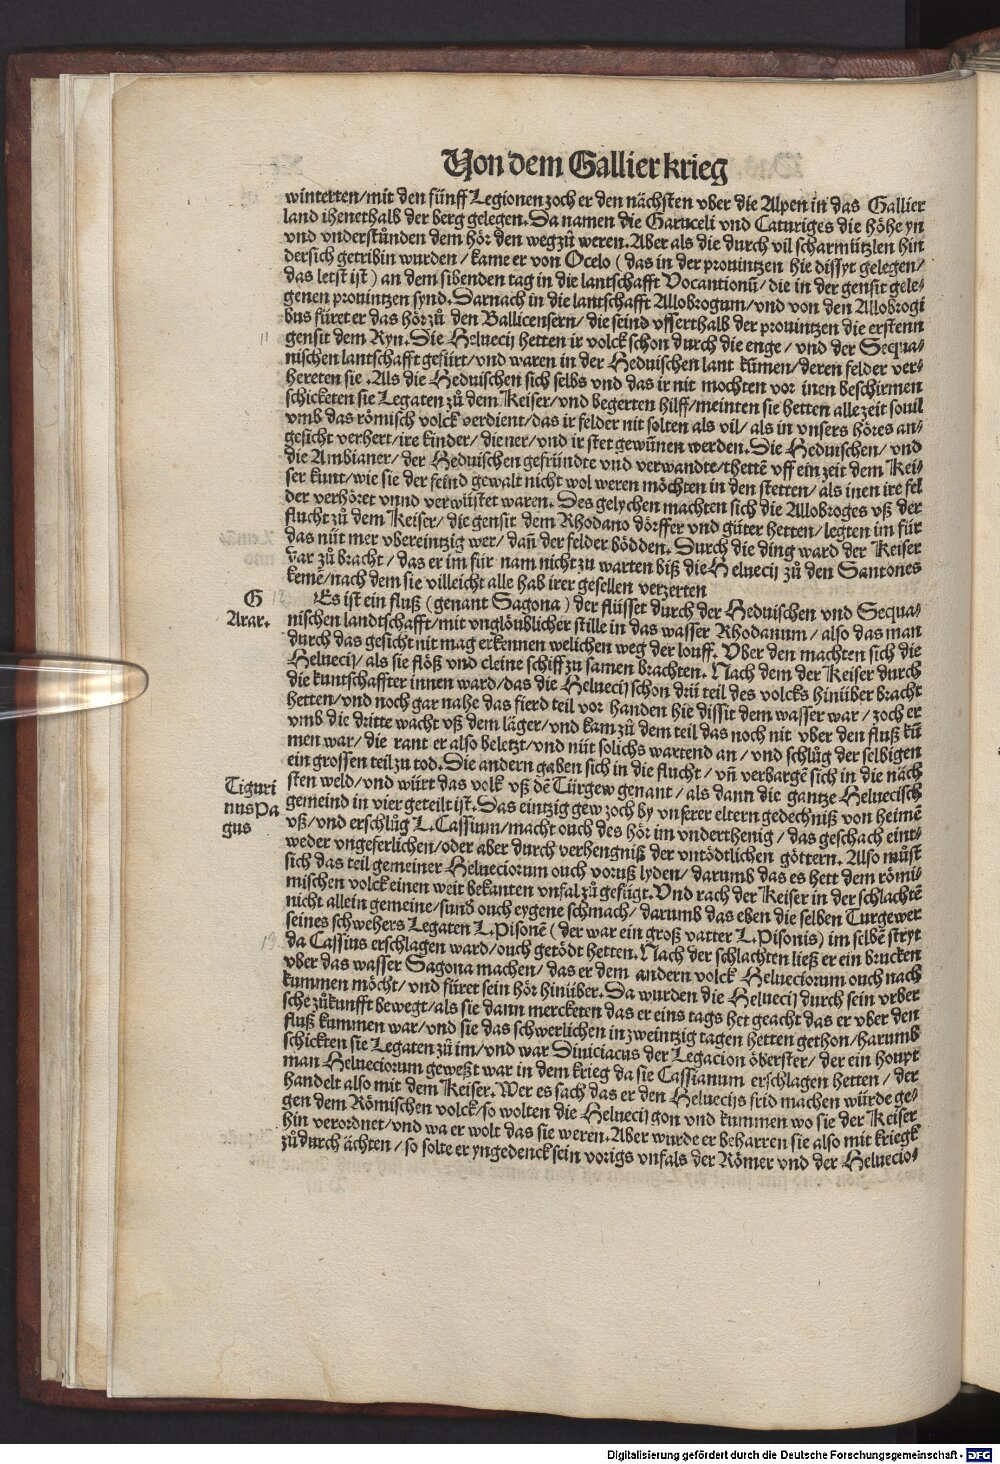 Von dem Gallier krieg
winterten/mit den fünff Legionen zoch er den nächsten vber die Alpen in das Gallier
land ihenethalb der berg gelegen. Da namen die Garuceli vnd Caturiges die höhe yn
vnd vnderstůnden dem hör den weg zů weren. Aber als die durch vil scharmützlen hin
dersich getribin wurden/kame er von Ocelo (das in der prouintzen hie dissyt gelegen/
das letst ist) an dem sibenden tag in die lantschafft Vocantionū/die in der gensit gele-
genen prouintzen synd. Darnach in die lantschafft Allobrogum/vnd von den Allobrogi
bus füret er das hör zů den Ballicensern/die seind vsserthalb der prouintzen die erstenn
gensit dem Ryn. Die Heluecij hetten ir volck schon durch die enge/vnd der Sequa-
nischen lantschafft gefürt/vnd waren in der Heduischen lant kūmen/deren felder ver-
hereten sie. Als die Heduischen sich selbs vnd das ir nit mochten vor inen beschirmen
schicketen sie Legaten zů dem Keiser/vnd begerten hilff/meinten sie hetten alle zeit souil
vmb das römisch volck verdient/das ir felder nit solten als vil/als in vnsers höres an-
gesicht verhert/ire kinder/diener/vnd ir stet gewūnen werden. Die Heduischen/vnd
die Ambianer/der Heduischen gefründte vnd verwandte/thettē vff ein zeit dem Kei-
ser kunt/wie sie der feind gewalt nicht wol weren möchten in den stetten/als inen ire fel
der verhöret vnnd verwüstet waren. Des gelychen machten sich die Allobroges vß der
flucht zů dem Keiser/die gensit dem Rhodano dörffer vnd güter hetten/legten im für
das nüt mer vbereintzig wer/dañ der felder bödden. Durch die ding ward der Keiser
dar zů bracht/das er im für nam nicht zu warten biß die Heluecij zů den Santones
kemē/nach dem sie villeicht alle hab irer gesellen verzerten
G
Arar.
Es ist ein fluß (genant Sagona) der flüsset durch der Heduischen vnd Sequa-
nischen landtschafft/mit vnglöublicher stille in das wasser Rhodanum/also das man
durch das gesicht nit mag erkennen welichen weg der louff. Vber den machten sich die
Heluecij/als sie flöß vnd cleine schiff zu samen brachten. Nach dem der Keiser durch
die kuntschaffter innen ward/das die Heluecij schon drü teil des volcks hinüber bracht
hetten/vnd noch gar nahe das fierd teil vor handen hie dissit dem wasser war/zoch er
vmb die dritte wacht vß dem läger/vnd kam zů dem teil das noch nit vber den fluß kū
men war/die rant er also beletzt/vnd nüt solichs wartend an/vnd schlůg der selbigen
ein grossen teil zu tod. Die andern gaben sich in die flucht/vñ verbargē sich in die näch
Tiguri
nus Pa
gus
sten weld/vnd würt das volk vß dē Türgew genant/als dann die gantze Heluecisch
gemeind in vier geteilt ist. Das eintzig gew zoch by vnserer eltern gedechniß von heimē
vß/vnd erschlůg L. Cassium/macht ouch des hör im vnderthenig/das geschach eint-
weder vngeferlichen/oder aber durch verhengniß der vntödtlichen göttern. Also můst
sich das teil gemeiner Helueciorum ouch voruß lyden/darumb das es hett dem römi-
mischen volck einen weit bekanten vnfal zů gefügt. Vnd rach der Keiser in der schlachtē
nicht allein gemeine/sund ouch eygene schmach/darumb das eben die selben Turgewer
seines schwehers Legaten L. Pisonē (der war ein groß vatter L. Pisonis) im selbē stryt
da Cassius erschlagen ward/ouch getödt hetten. Nach der schlachten ließ er ein brucken
vber das wasser Sagona machen/das er dem andern volck Helueciorum ouch nach
kummen möcht/vnd füret sein hör hinüber. Da wurden die Heluecij durch sein vrber
sche zůkunfft bewegt/als sie dann mercketen das er eins tags het geacht das er vber den
fluß kummen war/vnd sie das schwerlichen in zweintzig tagen hetten gethon/harumb
schickten sie Legaten zů im/vnd war Diniciacus der Legacion öberster/der ein houpt
man Helueciorum geweßt war in dem krieg da sie Cassianum erschlagen hetten/der
handelt also mit dem Keiser. Wer es sach das er den Heluecijs frid machen würde ge-
gen dem Römischen volck/so wolten die Heluecij gon vnd kummen wo sie der Keiser
hin verordnet/vnd wa er wolt das sie weren. Aber wurde er beharren sie also mit kriegk
zů durch ächten/so solte er yngedenck sein vorigs vnfals der Römer vnd der Heluecio-
Digitalisierung gefördert durch die Deutsche Forschungsgemeinschaft - DFG